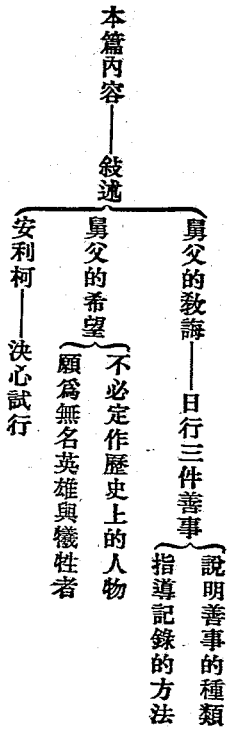 本篇內容——敍述
舅父的敎誨——日行三件善事
說明善事的種類
指導記錄的方法
舅父的希望
不必定作歷史上的人物
願爲無名英雄與犧牲者
安利柯——決心試行